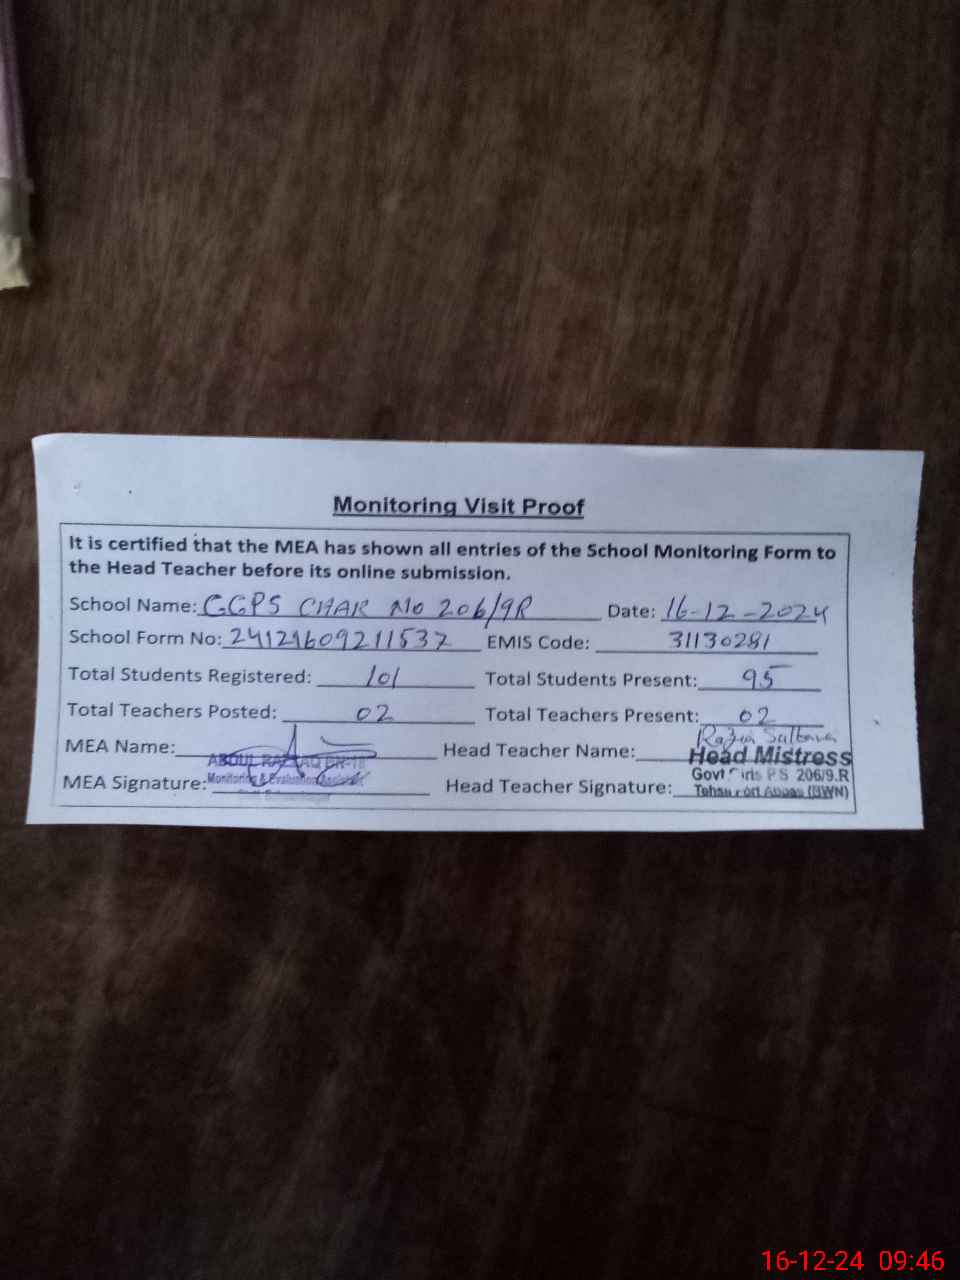 Monitoring Visit Proof
It is certified that the MEA has shown all entries of the School Monitoring Form to
the Head Teacher before its online submission.
School Name: GGPS CHAK No 206/9R Date: 16-12-2024
School Form No: 24121609211537 EMIS Code: 31130281
Total Students Registered: 101 Total Students Present: 95
Total Teachers Posted: 02 Total Teachers Present: 02
Razia Sultana
MEA Name: Head Teacher Name: Head Mistress
ABDUL RAZZAQ
Monitoring & Evaluation
Govt Girls P.S 206/9.R
MEA Signature: Head Teacher Signature: Abbas (BWN)
16-12-24 09:46